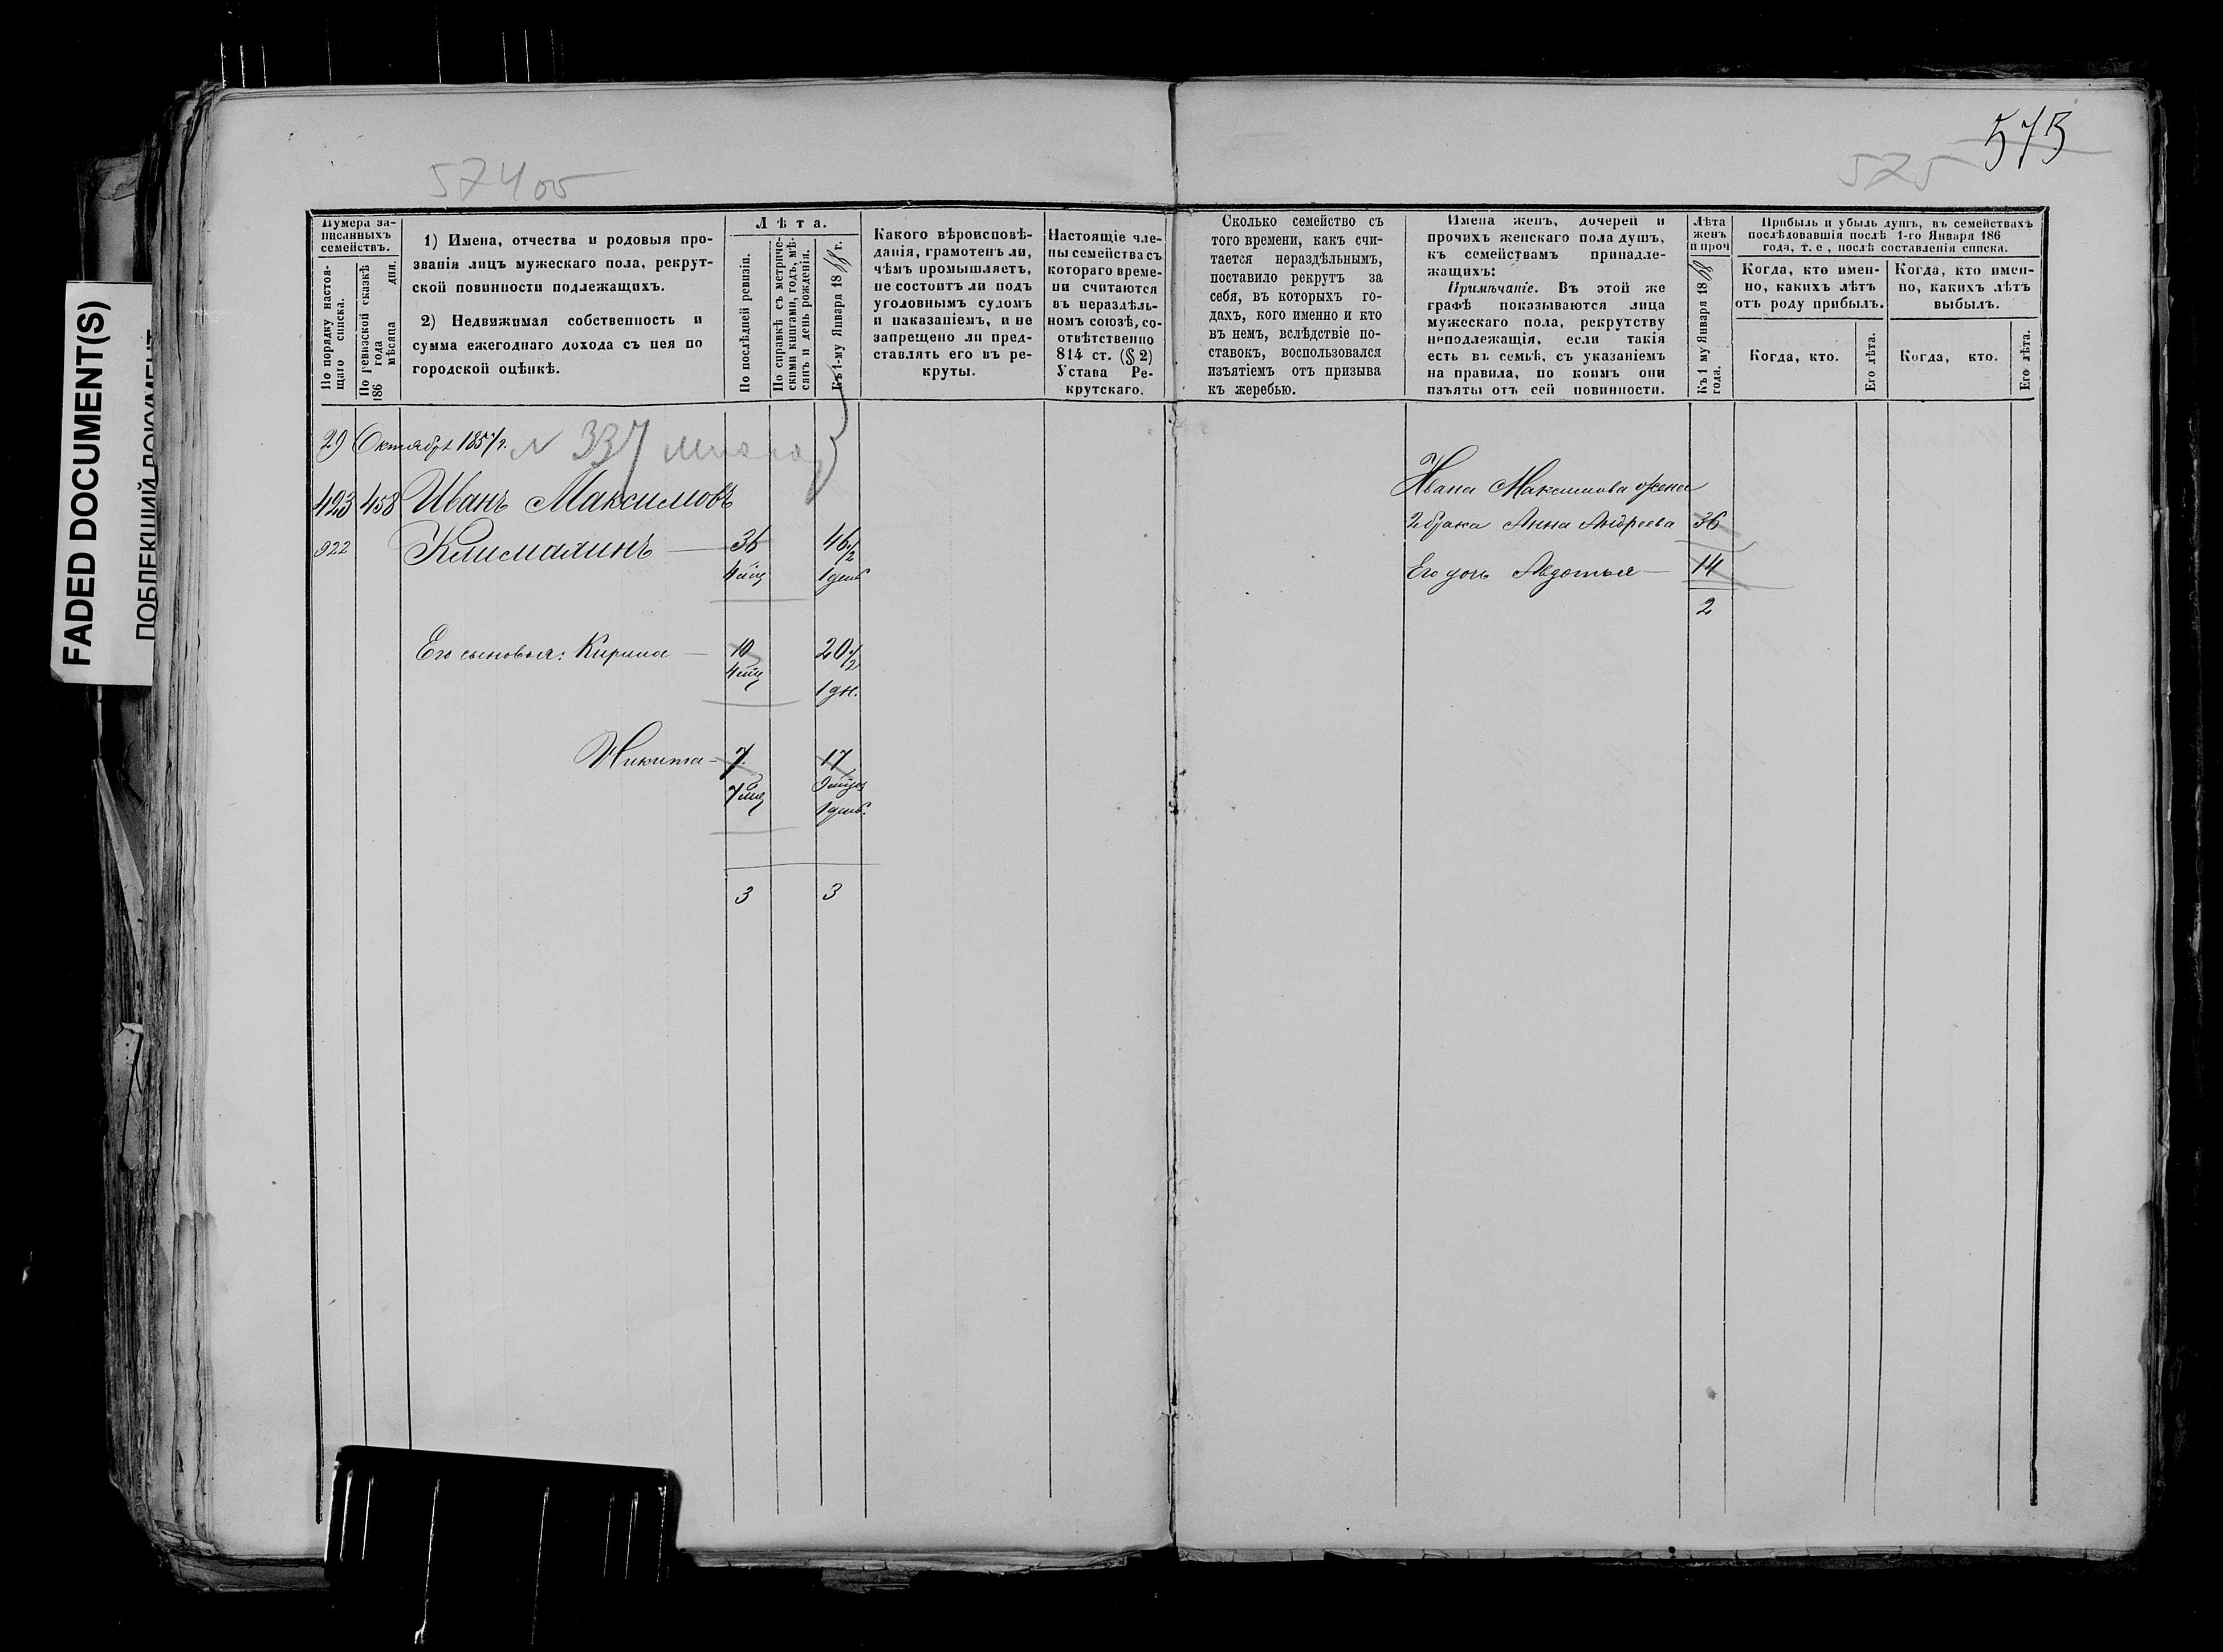 FADED DOCUMENT(S)
ПОБЛЕКШИЙ ДОКУМЕНТ
574 об
575
575
Нумера за-
писанныхъ
семействъ.
По порядку настоя-
щаго списка.
По ревизской сказкѣ
186 года
мѣсяца дня.
1) Имена, отчества и родовыя про-
званія лицъ мужескаго пола, рекрут-
ской повинности подлежащихъ.
2) Недвижимая собственность и
сумма ежегоднаго дохода съ нея по
городской оцѣнкѣ.
Лѣта.
По послѣдней ревизіи.
По справкѣ съ метриче-
скими книгами, годъ, мѣ-
сяцъ и день рожденія.
Къ 1-му Января 1868 г.
Какого вѣроисповѣ-
данія, грамотенъ ли,
чѣмъ промышляетъ,
не состоитъ ли подъ
уголовнымъ судомъ
и наказаніемъ, и не
запрещено ли пред-
ставлять его въ ре-
круты.
Настоящіе чле-
ны семейства съ
котораго време-
ни считаются
въ нераздѣль-
номъ союзѣ, со-
отвѣтственно
814 ст. (§ 2)
Устава Ре-
крутскаго.
Сколько семейство съ
того времени, какъ счи-
тается нераздѣльнымъ,
поставило рекрутъ за
себя, въ которыхъ го-
дахъ, кого именно и кто
въ немъ, вслѣдствіе по-
ставокъ, воспользовался
изъятіемъ отъ призыва
къ жеребью.
Имена женъ, дочерей и
прочихъ женскаго пола душъ,
къ семействамъ принадле-
жащихъ:
Примѣчаніе. Въ этой же
графѣ показываются лица
мужескаго пола, рекрутству
неподлежащія, если такія
есть въ семьѣ, съ указаніемъ
на правила, по коимъ они
изъяты отъ сей повинности.
Лѣта
женъ
и проч
Къ 1 му Января 1868
года.
Прибыль и убыль душъ, въ семействахъ
послѣдовавшія послѣ 1-го Января 186
года, т. е., послѣ составленія списка.
Когда, кто имен-
но, какихъ лѣтъ
отъ роду прибылъ.
Когда, кто имен-
но, какихъ лѣтъ
выбылъ.
Когда, кто.
Его лѣта.
Когда, кто.
Его лѣта.
29 Октября 1857 г. N 337
423 458 Иванъ Максимовъ
922 Клималинъ 36 46 1/2
4 мѣц 1 день
Его сыновья: Кирила 10 20 1/2
4 мѣц 1 дн.
Никита 7 17
7 мѣц
1 день.
3 3
Ивана Максимова жена
2 брака Анна Андреева 36
Его дочь Авдотья 14
2